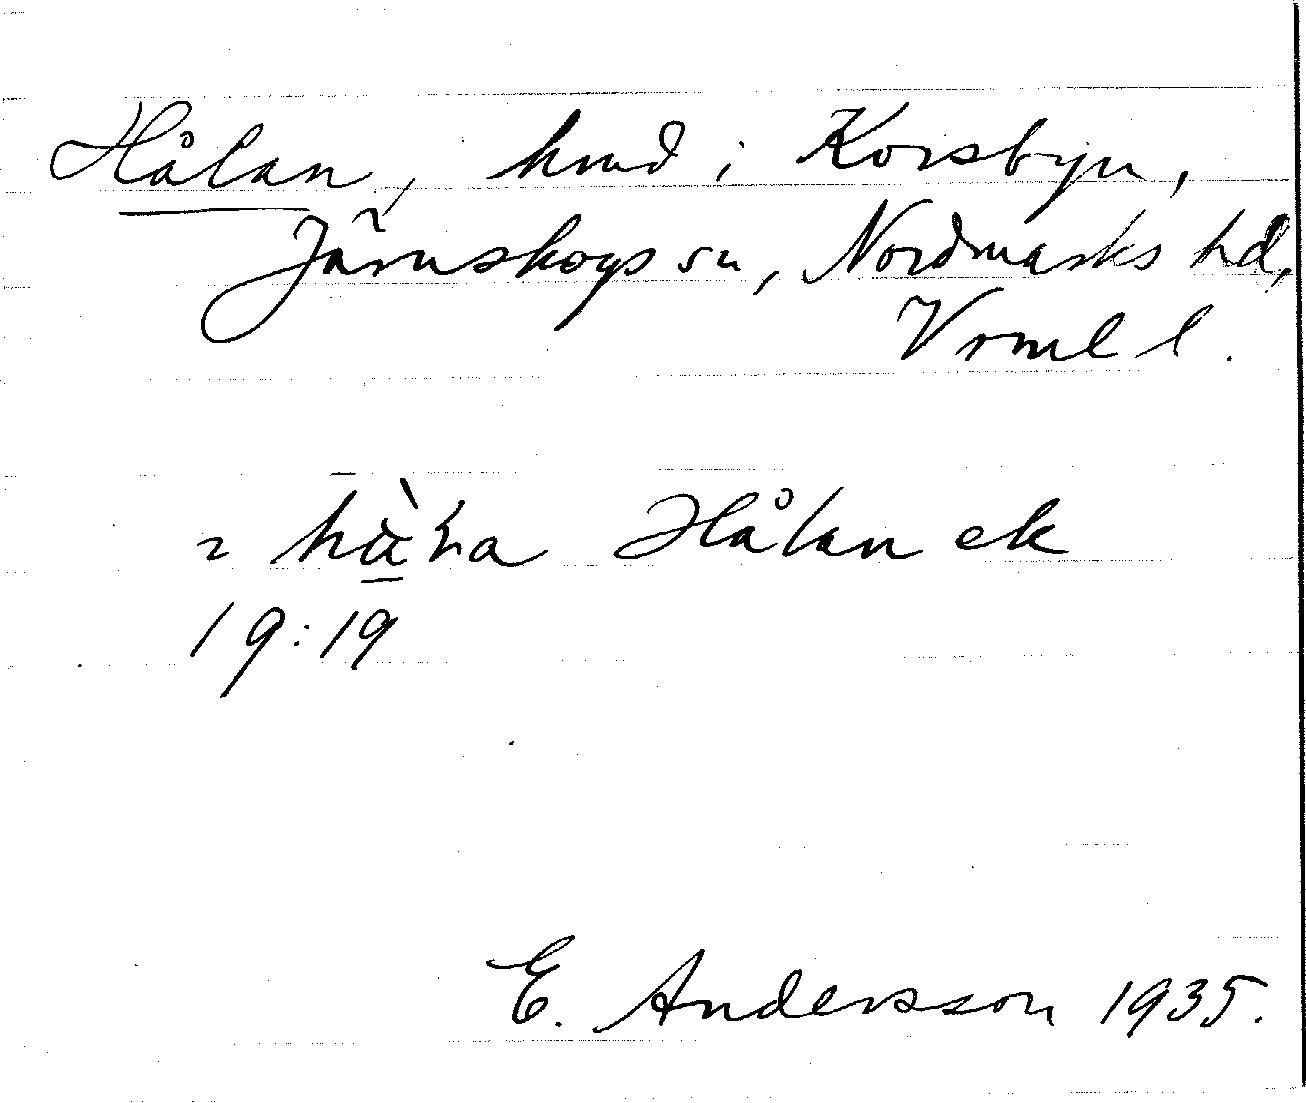 Hålan, hmd i Korsbyn,
Järnskogs sn, Nordmarks hd,
Vrml l.
Hålan ek
19:19
E. Andersson 1935.